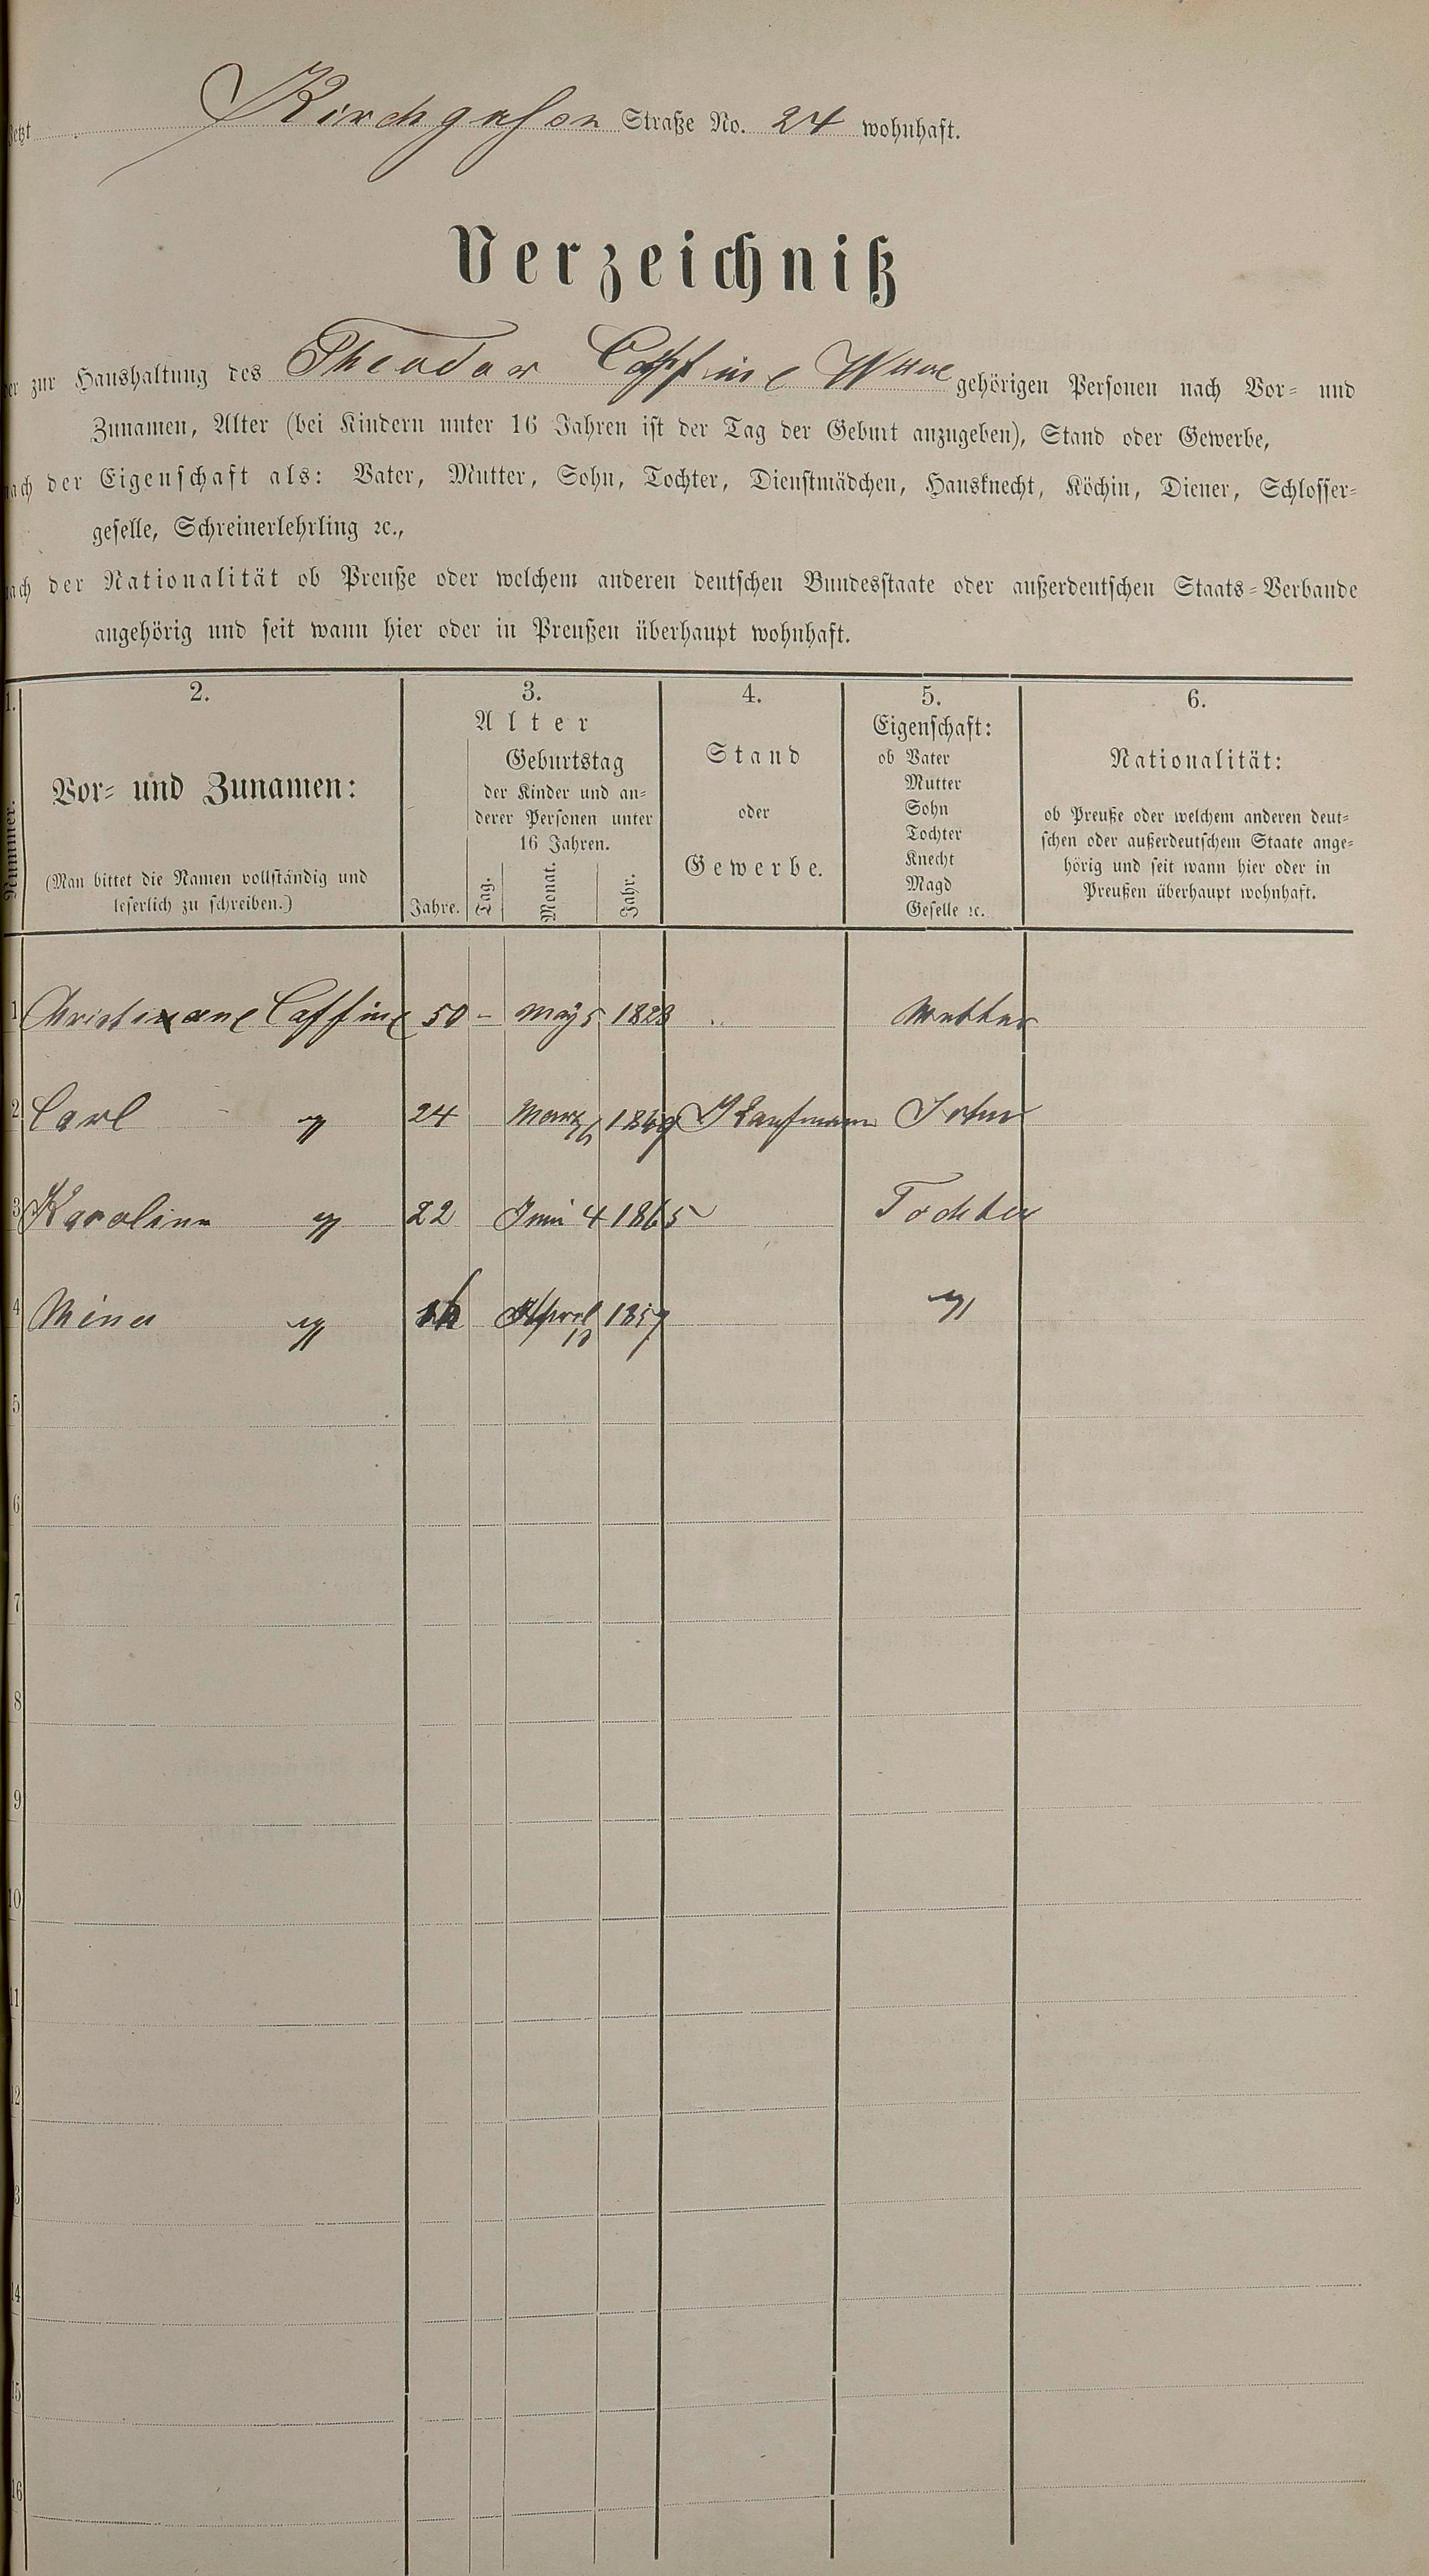 Jetzt Kirchgasse Straße No. 24 wohnhaft.
Verzeichniß
der zur Haushaltung des Theodor Caffine Wwe gehörigen Personen nach Vor- und
Zunamen, Alter (bei Kindern unter 16 Jahren ist der Tag der Geburt anzugeben), Stand oder Gewerbe,
nach der Eigenschaft als: Vater, Mutter, Sohn, Tochter, Dienstmädchen, Hausknecht, Köchin, Diener, Schlosser-
geselle, Schreinerlehrling ꝛc.,
nach der Nationalität ob Preuße oder welchem anderen deutschen Bundesstaate oder außerdeutschen Staats-Verbande
angehörig und seit wann hier oder in Preußen überhaupt wohnhaft.
1. 2. 3. 4. 5. 6.
Nummer.
Vor- und Zunamen:
(Man bittet die Namen vollständig und
leserlich zu schreiben.)
Alter
Jahre.
Geburtstag
der Kinder und an-
derer Personen unter
16 Jahren.
Tag. Monat. Jahr.
Stand
oder
Gewerbe.
Eigenschaft:
ob Vater
Mutter
Sohn
Tochter
Knecht
Magd
Geselle ꝛc.
Nationalität:
ob Preuße oder welchem anderen deut-
schen oder außerdeutschem Staate ange-
hörig und seit wann hier oder in
Preußen überhaupt wohnhaft.
1 Caffine 50 - May 5 1828 Mutter
2 Carl " 24 März Kaufmann Sohn
3 Karoline " 22 Juni 4 1865 Tochter
4 Mina " April 1857 "
5
6
7
8
9
10
11
12
13
14
15
16